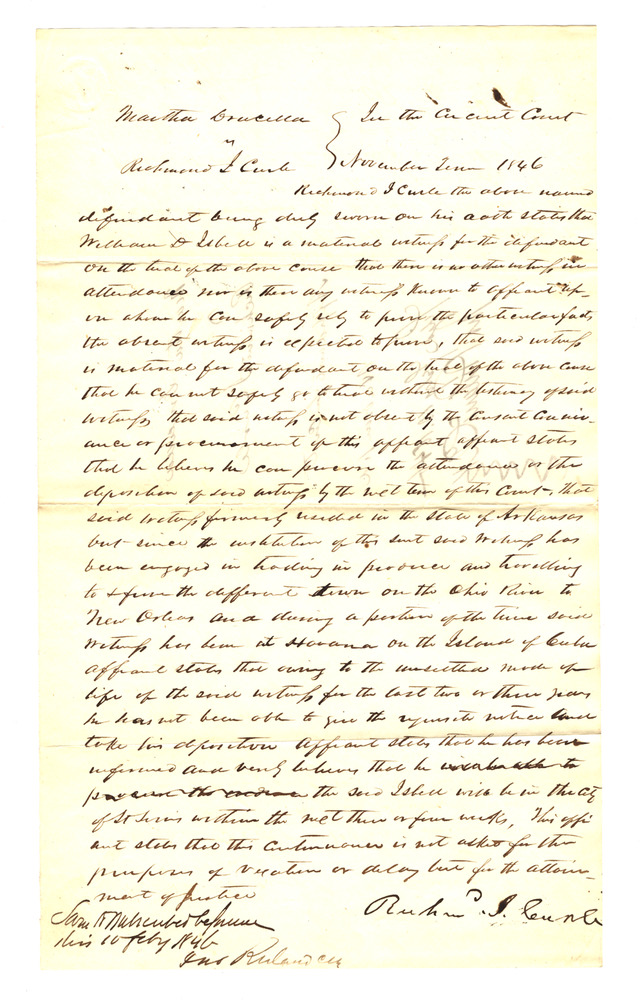 Martha Drucella } In the Circuit Court
vs
Richmond J Curle } November Term 1846
Richmond J Curle the above named
defendant being duly sworn on his oath states that
William D Isbell is a material witness for the defendant
on the trial of the above cause that there is no other witness in
attendance nor is there any witness known to affiant up-
on whom he can safely rely to prove the particular facts
the absent witness is expected to prove, that said witness
is material for the defendant on the trial of the above cause
that he can not safely go to trial without the testimony of said
witness, that said witness is not absent by the consent conniv-
ance or procurement of this affiant affiant states
that he believes he can procure the attendance or the
deposition of said witness by the next term of this Court, that
said witness formerly resided in the state of Arkansas
but since the institution of this suit said Witness has
been engaged in trading in produce and travelling
to & from the different town on the Ohio River to
New Orleas and during a portion of the time said
Witness has been at Havana on the Island of Cuba
Affiant states that owing to the unsettled mode of
life of the said witness for the last two or three years
he has not been able to give the requisite notice and
take his deposition Affiant states that he has been
informed and verily believes that he
procure the the said Isbell will be in the city
of St Louis within the next three or four weeks, This affi
ant states that this continuance is not asked for the
purposes of vexation or delay but for the attain-
ment of Justice
Richmd. J. Curle
Sworn to & subscribed before me
this 10 feby 1846
Jno Ruland clk